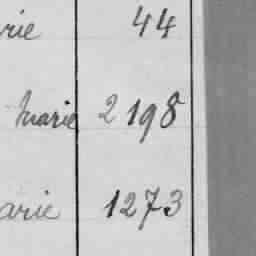 rie 44
Marie 2 198
arie 1273